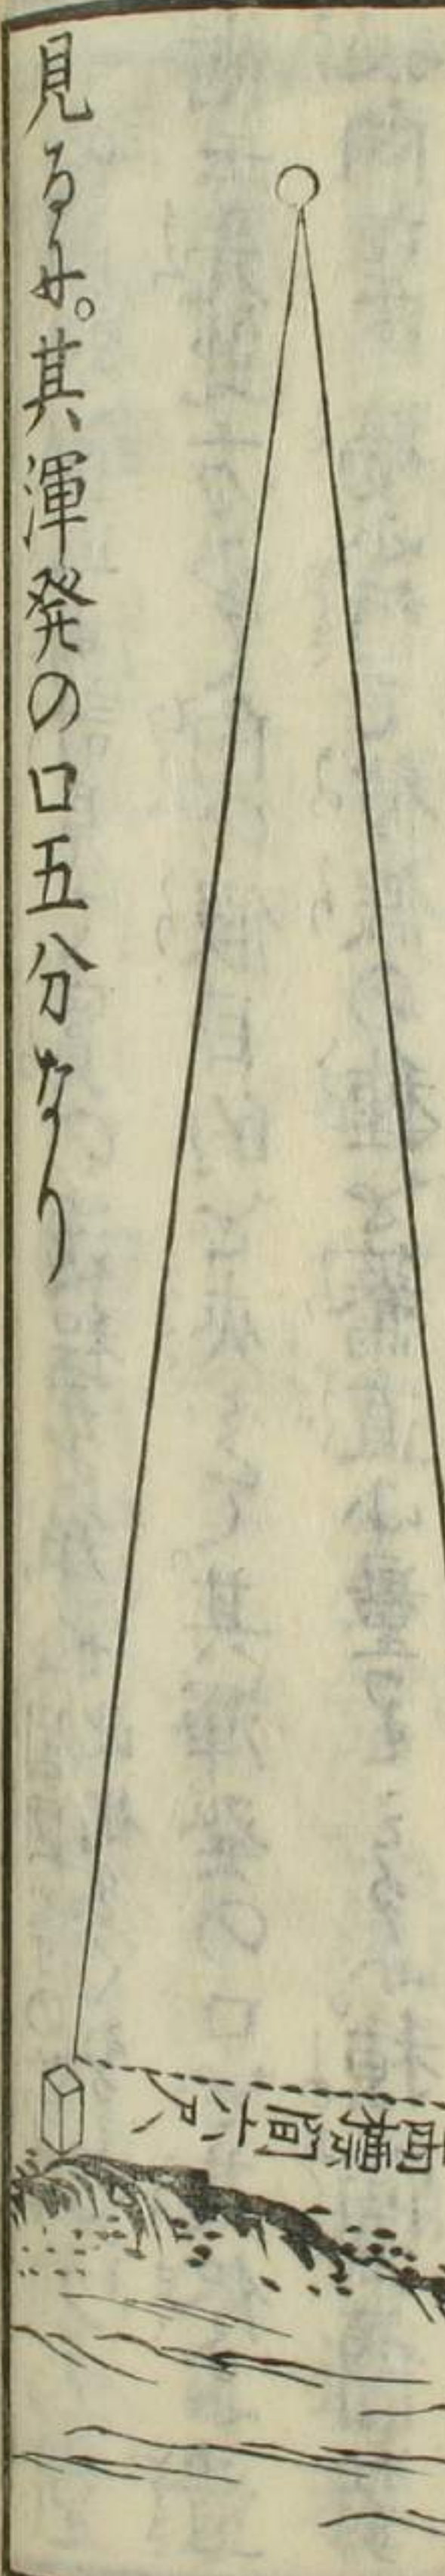 見るに。其渾発の口五分なり
両標間六尺